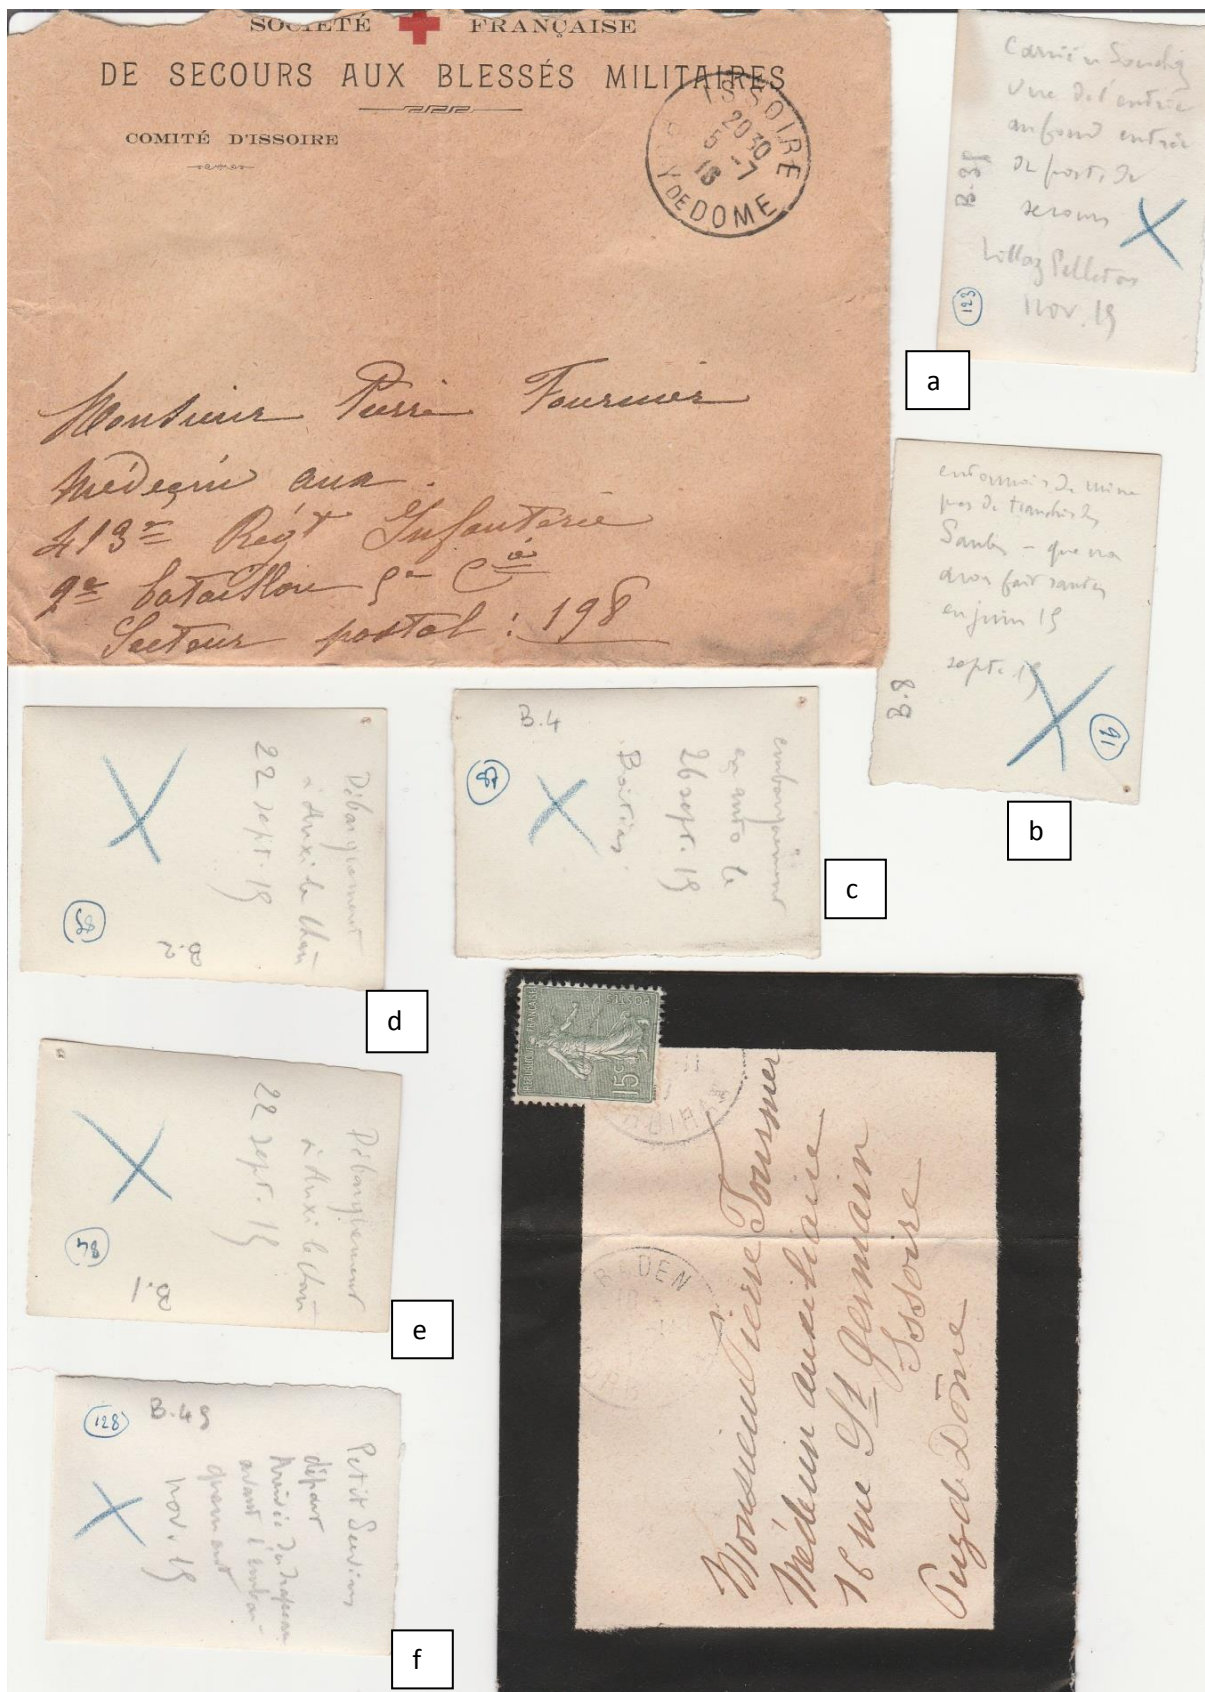 SOCIÉTÉ FRANÇAISE
DE SECOURS AUX BLESSÉS MILITAIRES
COMITÉ D'ISSOIRE
ISSOIRE
20 30
5 -7
16
PUY DE DOME
Monsieur Pierre Fournier
Médecin aux.
413e Régt Infanterie
9e bataillon 5e Cie
Secteur postal : 198
vue de l'entrée
au fond entrée
du poste de
secours
nov. 15
B.39
123
a
entonnoir de mine
que nous
avons fait sauter
en juin 15
sept. 15
B.8
91
b
embarquement
en auto le
26 sept. 15
B.4
c
Débarquement
à Auxi le Chau
22 sept. 15
B.2
85
d
Débarquement
à Auxi le Chau
22 sept. 15
B.1
84
e
Petit Servins
départ
Arrivée du drapeau
avant l'embar-
quement
nov. 15
B.45
128
f
REPUBLIQUE FRANÇAISE
POSTES
15c
BADEN
Monsieur Pierre Fournier
Médecin auxiliaire
16 rue St Germain
Issoire
Puy de Dôme